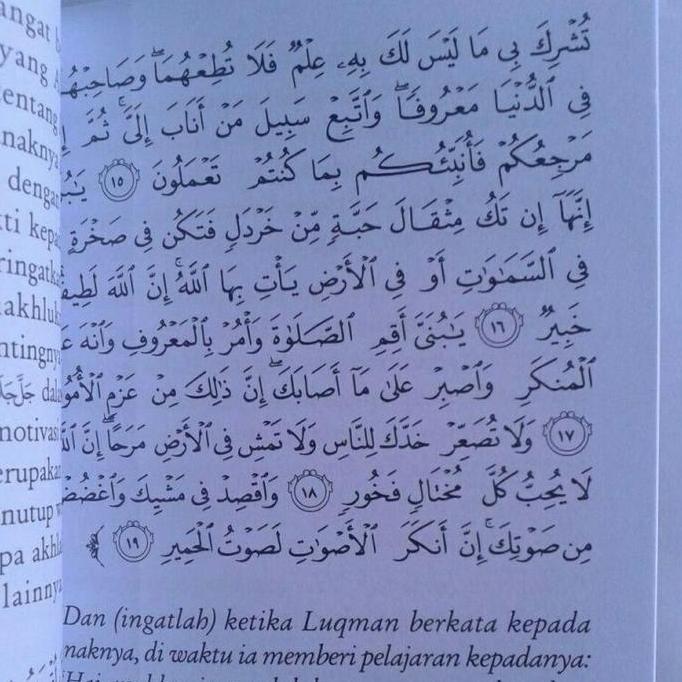 تُشْرِكَ بِى مَا لَيْسَ لَكَ بِهِۦ عِلْمٌ فَلَا تُطِعْهُمَا ۖ وَصَاحِبْهُ
فِى ٱلدُّنْيَا مَعْرُوفًا ۖ وَٱتَّبِعْ سَبِيلَ مَنْ أَنَابَ إِلَىَّ ۚ ثُمَّ
مَرْجِعُكُمْ فَأُنَبِّئُكُم بِمَا كُنتُمْ تَعْمَلُونَ ١٥ يَـٰبُ
إِنَّهَآ إِن تَكُ مِثْقَالَ حَبَّةٍ مِّنْ خَرْدَلٍ فَتَكُن فِى صَخْرَةٍ
فِى ٱلسَّمَـٰوَٰتِ أَوْ فِى ٱلْأَرْضِ يَأْتِ بِهَا ٱللَّهُ ۚ إِنَّ ٱللَّهَ لَطِيفٌ
خَبِيرٌ ١٦ يَـٰبُنَىَّ أَقِمِ ٱلصَّلَوٰةَ وَأْمُرْ بِٱلْمَعْرُوفِ وَٱنْهَ عَ
ٱلْمُنكَرِ وَٱصْبِرْ عَلَىٰ مَآ أَصَابَكَ ۖ إِنَّ ذَٰلِكَ مِنْ عَزْمِ ٱلْأُمُو
١٧ وَلَا تُصَعِّرْ خَدَّكَ لِلنَّاسِ وَلَا تَمْشِ فِى ٱلْأَرْضِ مَرَحًا ۖ إِنَّ ٱللَّ
لَا يُحِبُّ كُلَّ مُخْتَالٍ فَخُورٍ ١٨ وَٱقْصِدْ فِى مَشْيِكَ وَٱغْضُضْ
مِن صَوْتِكَ ۚ إِنَّ أَنكَرَ ٱلْأَصْوَٰتِ لَصَوْتُ ٱلْحَمِيرِ ١٩
Dan (ingatlah) ketika Luqman berkata kepada
naknya, di waktu ia memberi pelajaran kepadanya:
angat
yang
entang
naknya
dengan
kti kepa
ringatka
akhluk
ntingnya
جَلَّجَلَا dala
motivasi
erupakan
nutup
pa akhla
lainnya